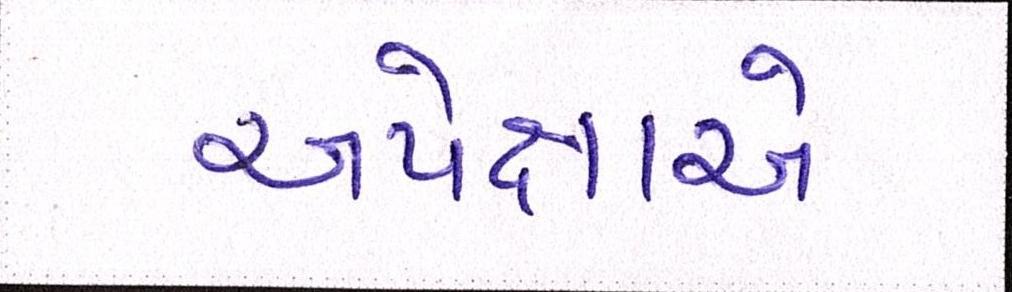 અપેક્ષાએ